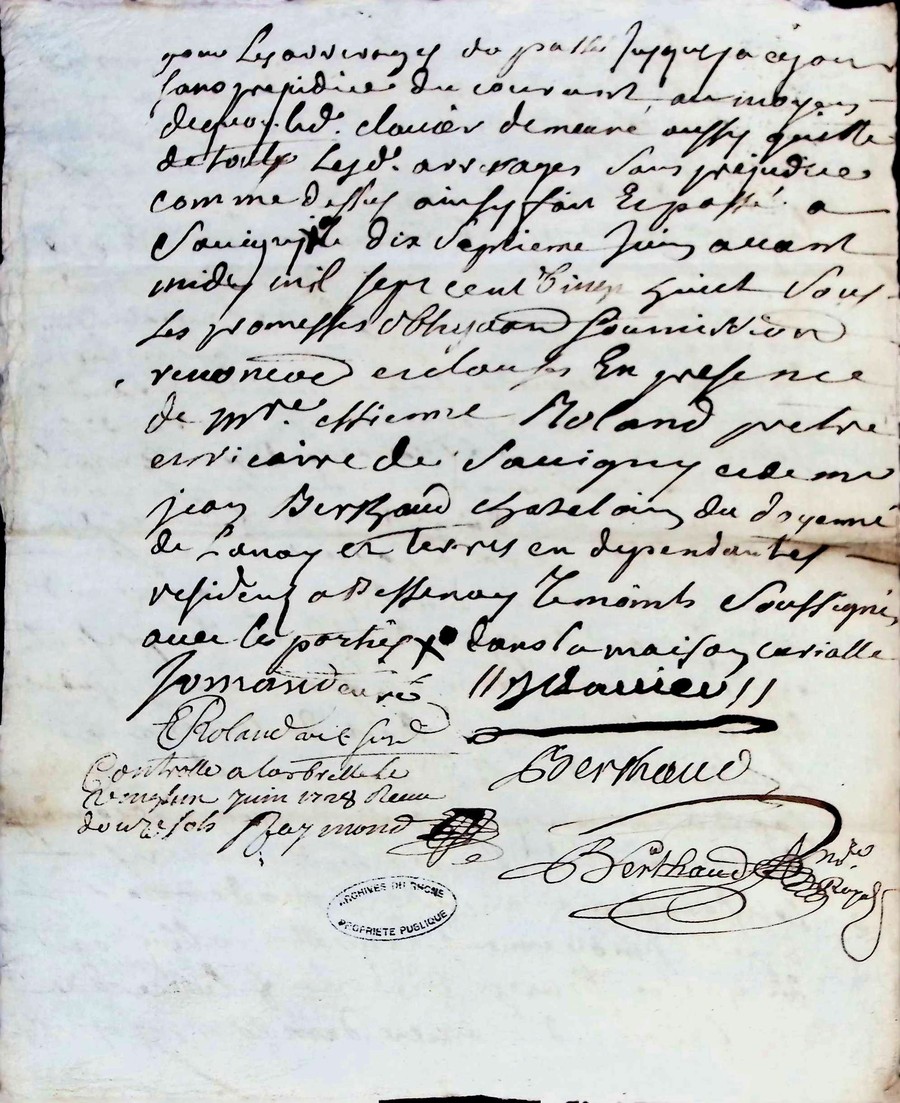 pour les arrerages du passé jusques a ce jour
sans prejudice du courant, au moyen
dequoy led. clavier demeure aussy quitte
de touts lesd. arrerages sans prejudice
comme dessus ainsy fait et passé a
Savigny le dix septieme juin avant
midy mil sept cent vingt huict sous
les promesses obligaõn soumission
renonciaõ et clauses En presence
de mre. estienne Roland pretre
et vicaire de Savigny et de me
jean Berthaud chatelain du doyenné
de Lanay et terres en dependantes
resident a Bessenay temoints soussignés
avec les parties x dans la maison curialle
Jomand curé Clavier
E Roland vic susd
Controlle a Larbrelle le Berthaud
vingt un juin 1728 Receu
douze sols Raymond
Berthaud nre Royal
ARCHIVES DU RHONE
PROPRIETE PUBLIQUE